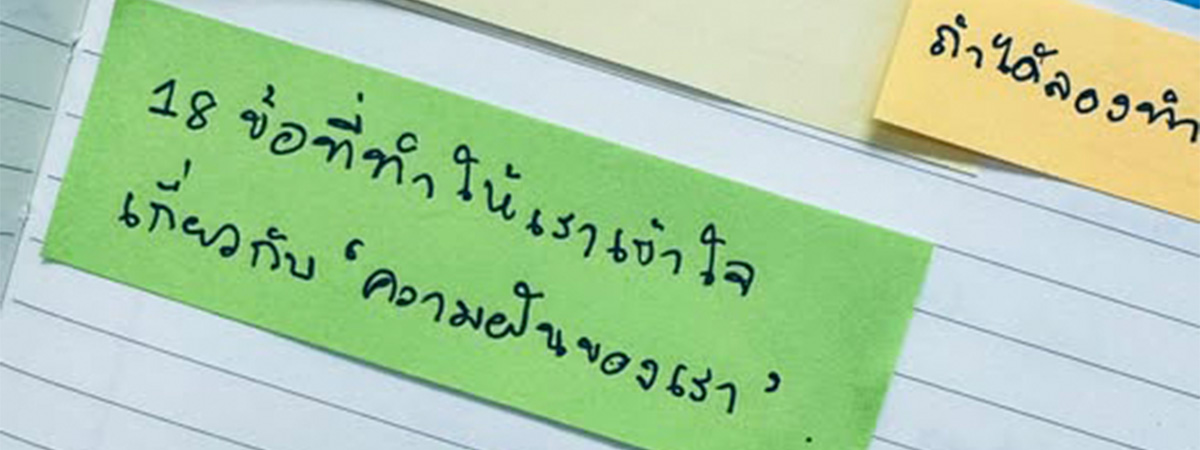 18 ข้อที่ทำให้เราเข้าใจ
เกี่ยวกับ ‘ความฝันของเรา’
ถ้าได้ลองทำ